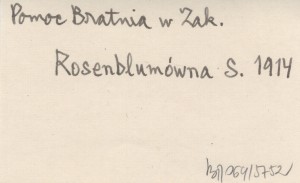 Pomoc Bratnia w Zak.
Rosenblumówna S. 1914
969/5752